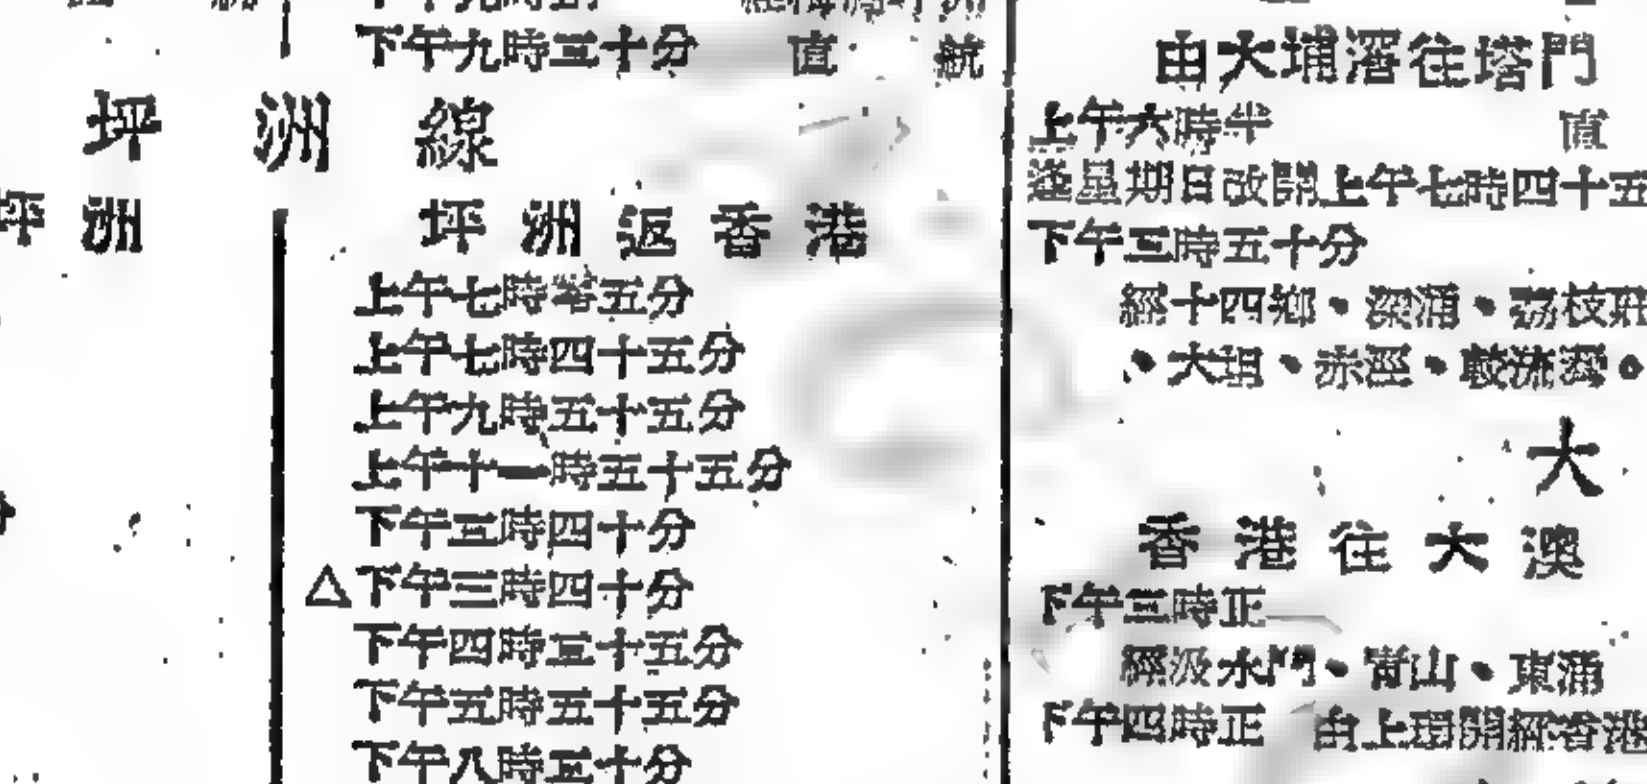 下午九時三十分 直航
坪洲線
坪洲
坪洲返香港
上午七時零五分
上午七時四十五分
上午九時五十五分
上午十一時五十五分
下午三時四十分
△下午三時四十分
下午四時三十五分
下午五時五十五分
下午八時三十分
由大埔滘往塔門
上午六時半 直
逢星期日改開上午七時四十五
下午三時五十分
經十四鄉、深涌、荔枝莊
、大垻、赤徑、較流灣。
大
香港往大澳
下午三時正
經汲水門、青山、東涌
下午四時正 由上環開經香港